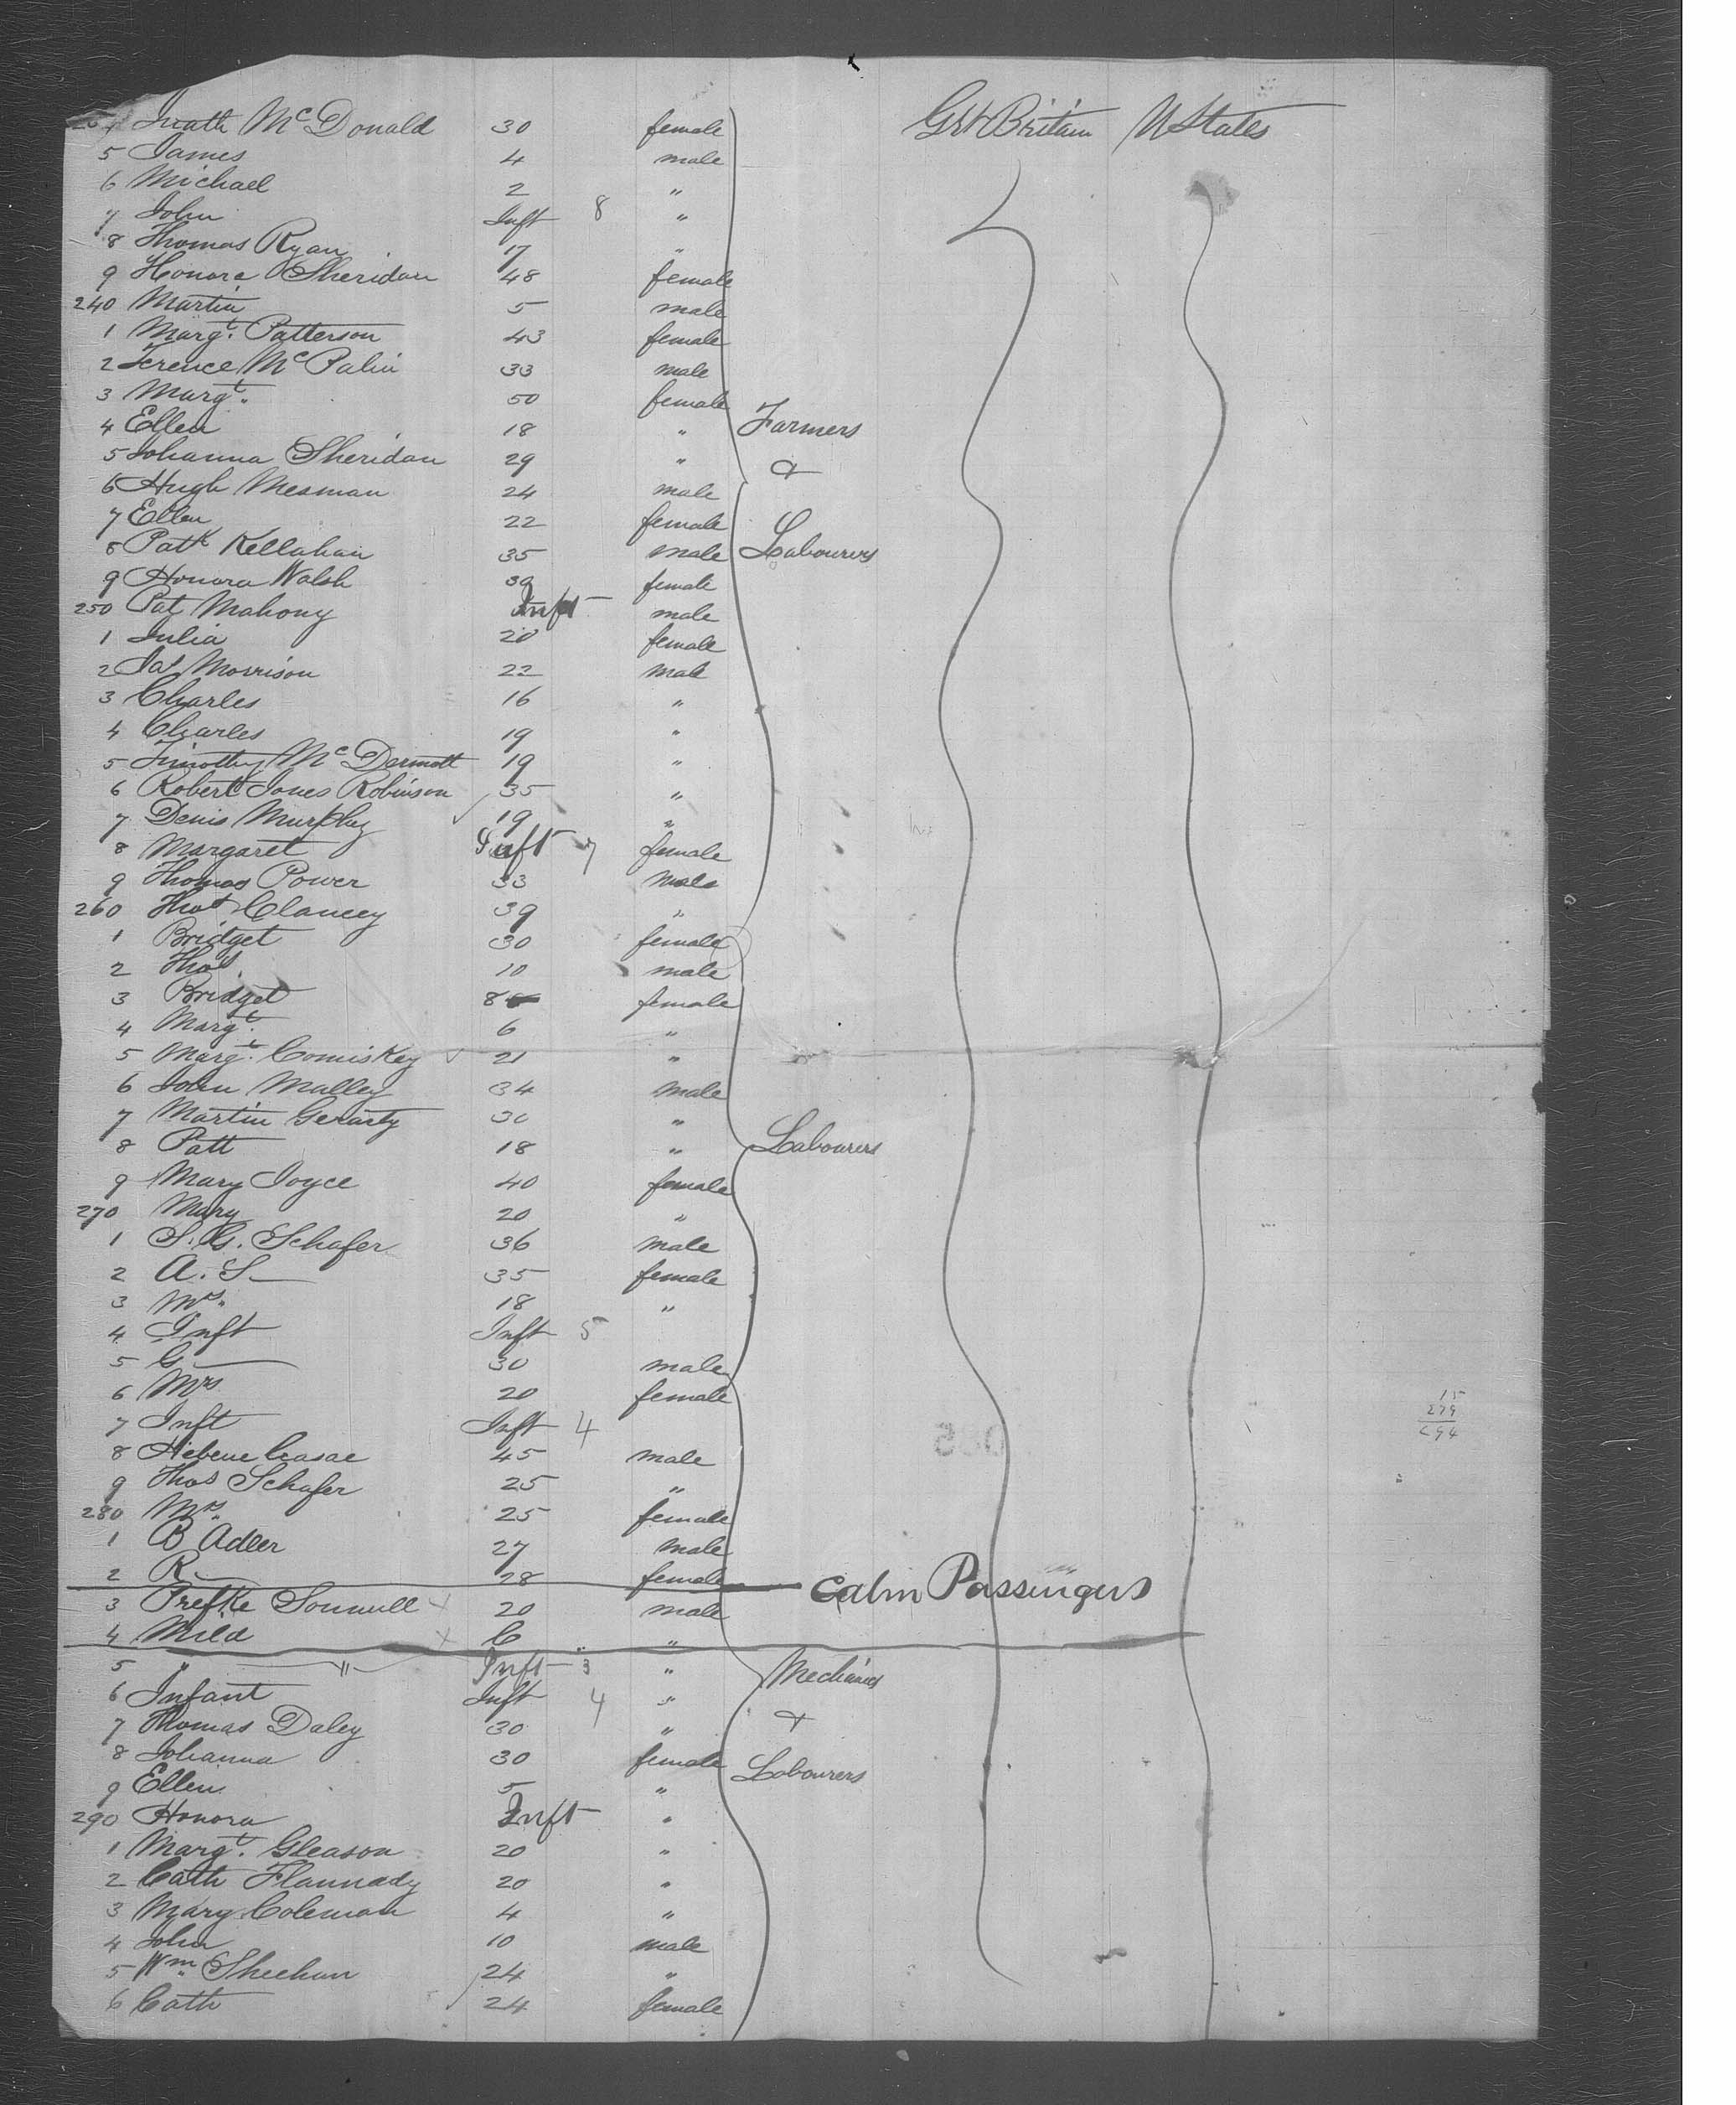 Grt Britain U States
McDonald 30 female
5 James 4 male
6 Michael 2 "
7 John Inft 8 "
8 Thomas Ryan 17 "
9 Honora Sheridan 48 female
240 Martin 5 male
1 Margt. Patterson 43 female
2 Terence McPalin 33 male
3 Margt. 50 female
4 Ellen 18 " Farmers
5 Johanna Sheridan 29 " &
6 Hugh Mesman 24 male
7 Ellen 22 female
8 Patk Kellahan 35 male Labourers
9 Honora Walsh 30 female
250 Pat Mahony Inft male
1 Julia 20 female
2 Jas Morrison 22 male
3 Charles 16 "
4 Charles 19 "
5 Timothy McDermott 19 "
6 Robert Jones Robinson 35 "
7 Denis Murphy 19 "
8 Margaret Inft 7 female
9 Thomas Power 33 male
260 Thos Clancey 39 "
1 Bridget 30 female
2 Thos. 10 male
3 Bridget 8 female
4 Margt. 6 "
5 Margt. Comiskey 21 "
6 John Malley 34 male
7 Martin Gerarty 30 "
8 Patt 18 " Labourers
9 Mary Joyce 40 female
270 Mary 20 "
1 S. G. Schafer 36 male
2 A. S— 35 female
3 Mrs. 18 "
4 Inft Inft 5
5 G — 30 male
6 Mrs 20 female
7 Inft Inft 4
8 45 male
9 Thos Schafer 25 "
280 Mrs. 25 female
1 B Adler 27 male
2 R — 28 female
Cabin Passengers
3 Prefke 20 male
4 Mild 6 "
5 " — " — Inft 3 " Mechanics
6 Infant Inft 4 "
7 Thomas Daley 30 " &
8 Johanna 30 female Labourers
9 Ellen 5 "
290 Honora Inft "
1 Margt. Gleason 20 "
2 Cath Flannady 20 "
3 Mary Coleman 4 "
4 John 10 male
5 Wm Sheehan 24 "
6 Cath 24 female
15
279
294